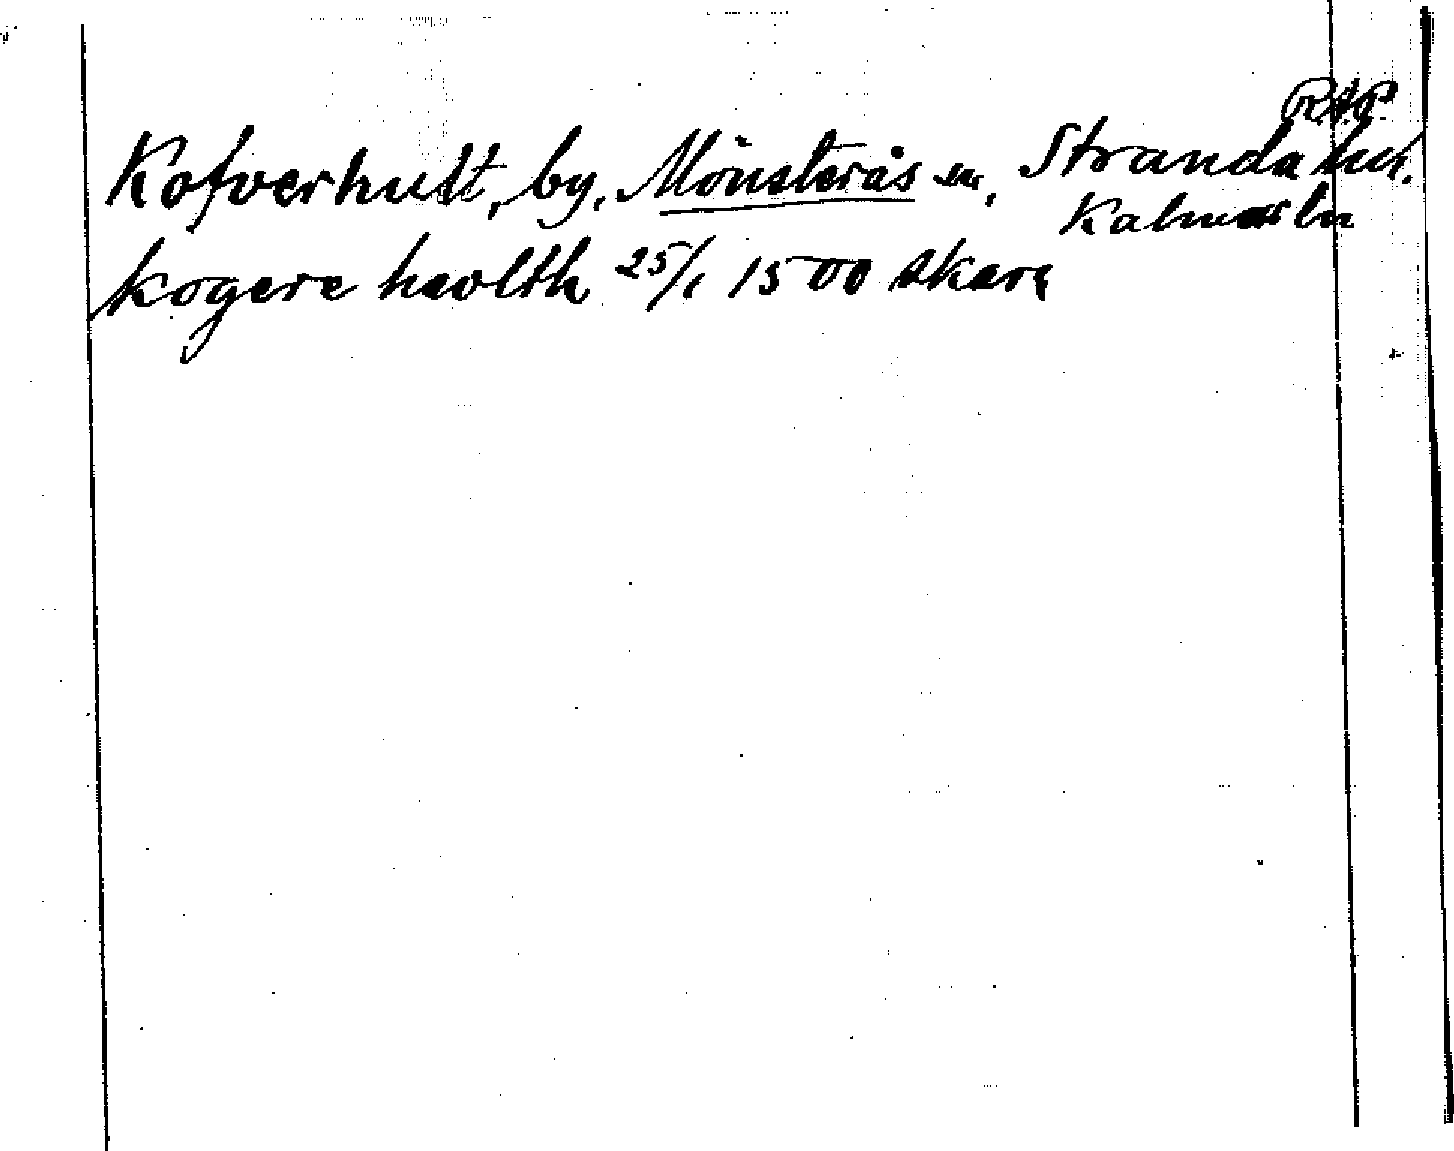 RAP
Kofverhult, by, Mönsterås sn, Stranda hd.
Kalmar ln
kogere havlth 25/1 1500 skara